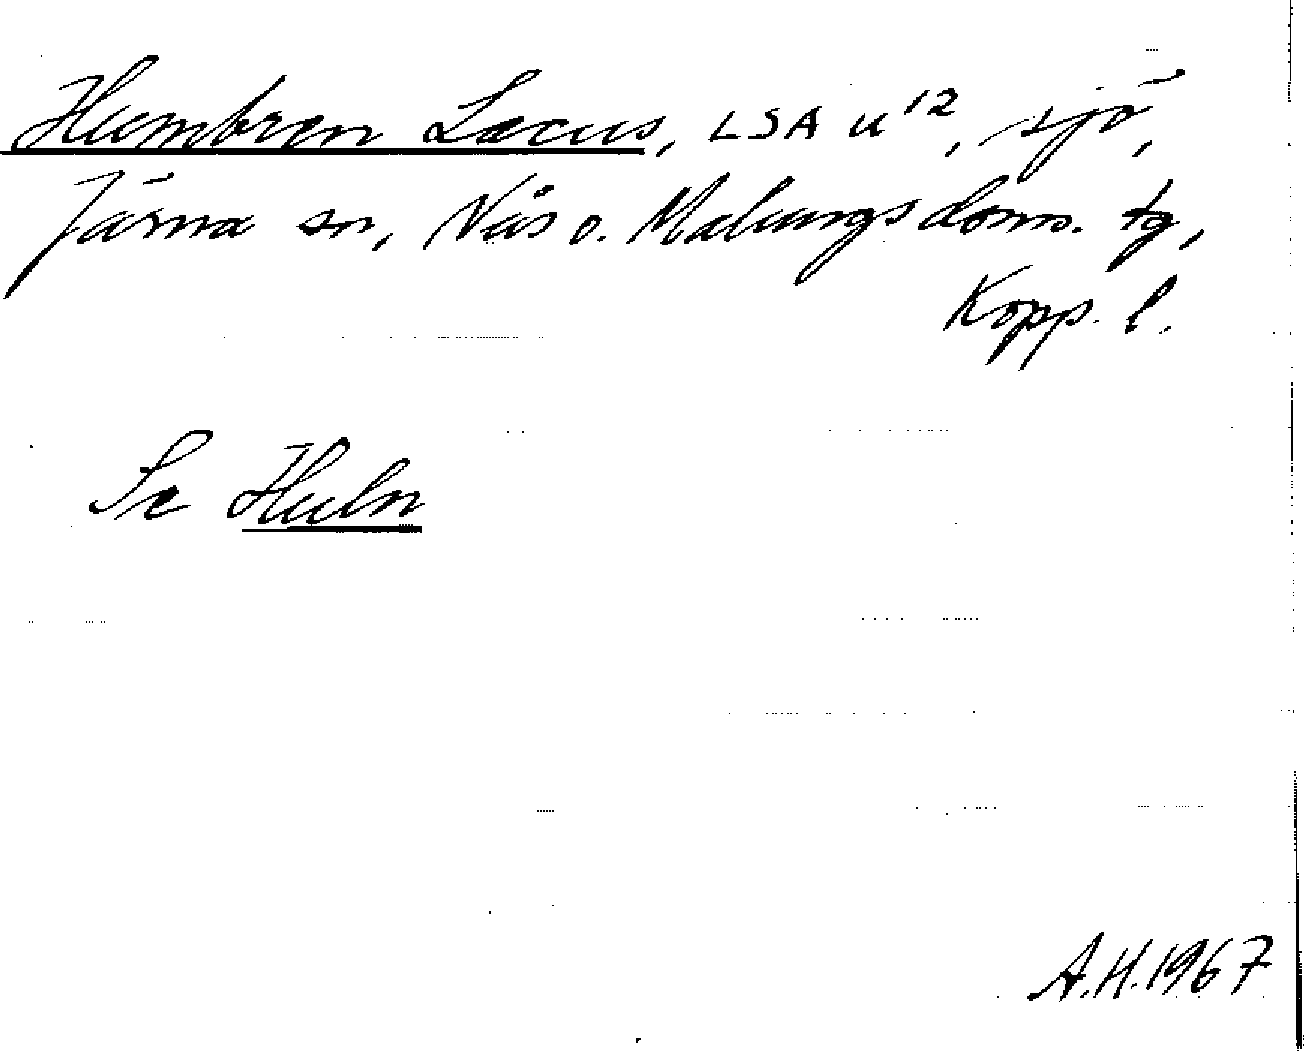 Humbren Lacus, LSA u¹², sjö,
Järna sn, Nås o. Malungs doms. tg,
Kopp. l.
Se Huln
A.H. 1967